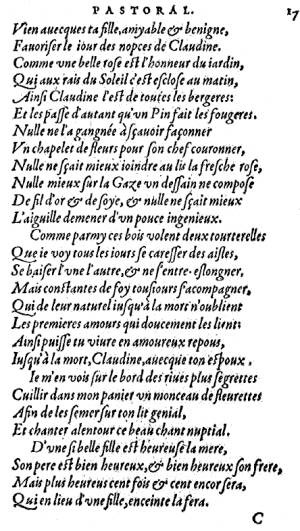 PASTORAL. 17
Vien auecques ta fille, amyable & benigne,
Fauoriser le iour des nopces de Claudine.
Comme vne belle rose est l'honneur du iardin,
Qui aux rais du Soleil c'est esclose au matin,
Ainsi Claudine l'est de toutes les bergeres:
Et les passe d'autant qu'vn Pin fait les fougeres.
Nulle ne l'a gangnée à sçauoir façonner
Vn chapelet de fleurs pour son chef couronner,
Nulle ne sçait mieux ioindre au lis la fresche rose,
Nulle mieux sur la Gaze vn dessain ne compose
De fil d'or & de soye, & nulle ne sçait mieux
L'aiguille demener d'vn pouce ingenieux.
Comme parmy ces bois volent deux tourterelles
Que ie voy tous les iours se caresser des aisles,
Se baiser l'vne l'autre, & ne s'entre-eslongner,
Mais constantes de foy tousiours s'acompagner,
Qui de leur naturel iusqu'à la mort n'oublient
Les premieres amours qui doucement les lient:
Ainsi puisse tu viure en amoureux repous,
Iusqu'à la mort, Claudine, auecque ton espoux.
Ie m'en vois sur le bord des riues plus segrettes
Cuillir dans mon panier vn monceau de fleurettes
Afin de les semer sur ton lit genial,
Et chanter alentour ce beau chant nuptial.
D'vne si belle fille est heureuse la mere,
Son pere est bien heureux, & bien heureux son frere,
Mais plus heureus cent fois & cent encor sera,
Qui en lieu d'vne fille, enceinte la fera.
C